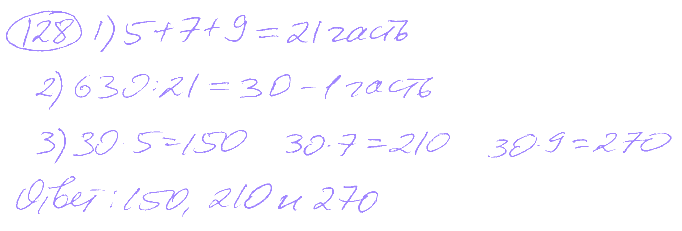 128 1) 5+7+9=21 часть
2) 630:21=30 - 1 часть
3) 30·5=150 30·7=210 30·9=270
Ответ: 150, 210 и 270